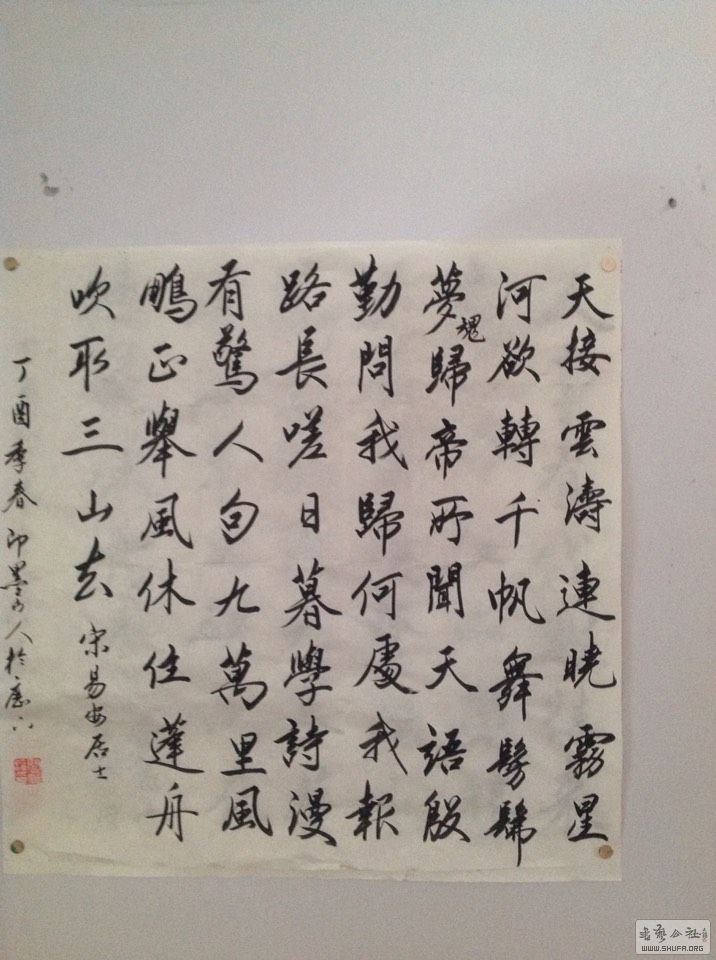 天接雲濤連曉霧星
河欲轉千帆舞髣髴
夢魂歸帝所聞天語殷
勤問我歸何處我報
路長嗟日暮學詩漫
有驚人句九萬里風
鵬正舉風休住蓬舟
吹取三山去 宋易安居士
丁酉季春印墨山人於
书艺公社
WWW.SHUFA.ORG